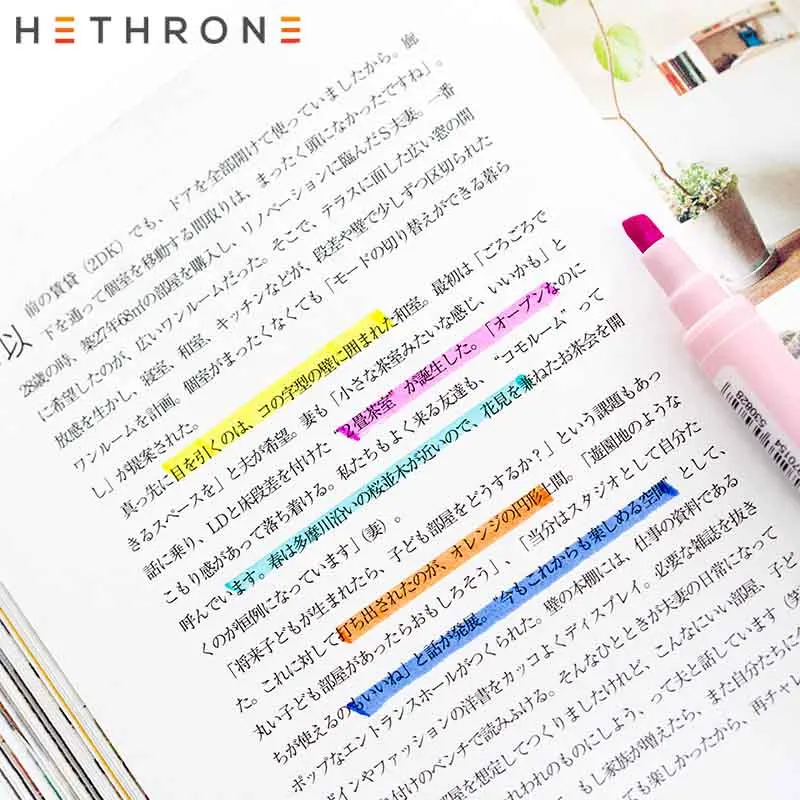 HETHRONE
以
前の賃貸（2DK）でも、ドアを全部開けて使っていましたから。廊
下を通って個室を移動する間取りは、まったく頭になかったですね」。
28歳の時、築27年68㎡の部屋を購入し、リノベーションに臨んだS夫妻。一番
に希望したのが、広いワンルームだった。そこで、テラスに面した広い窓の開
放感を生かし、寝室、和室、キッチンなどが、段差や壁で少しずつ区切られた
ワンルームを計画。個室がまったくなくても「モードの切り替えができる暮ら
し」が提案された。
真っ先に目を引くのは、コの字型の壁に囲まれた和室。最初は「ごろごろで
きるスペースを」と夫が希望。妻も「小さな茶室みたいな感じ、いいかも」と
話に乗り、LDと床段差を付けた“2畳茶室”が誕生した。「オープンなのに
こもり感があって落ち着ける。私たちもよく来る友達も、“コモルーム”って
呼んでいます。春は多摩川沿いの桜並木が近いので、花見を兼ねたお茶会を開
くのが恒例になっています」（妻）。
「将来子どもが生まれたら、子ども部屋をどうするか？」という課題もあっ
た。これに対して打ち出されたのが、オレンジの円形土間。「遊園地のような
丸い子ども部屋があったらおもしろそう」、「当分はスタジオとして自分た
ちが使えるのもいいね」と話が発展。“今もこれからも楽しめる空間”として、
ポップなエントランスホールがつくられた。壁の本棚には、仕事の資料である
ザインやファッションの洋書をカッコよくディスプレイ。必要な雑誌を抜き
付けのベンチで読みふける。そんなひとときが夫妻の日常になって
部屋を想定してつくりましたけれど、こんなにいい部屋、子ど
われのものにしよう、って夫と話しています（笑
もし家族が増えたら、また自分たちに
ても楽しかったから、再チャレ